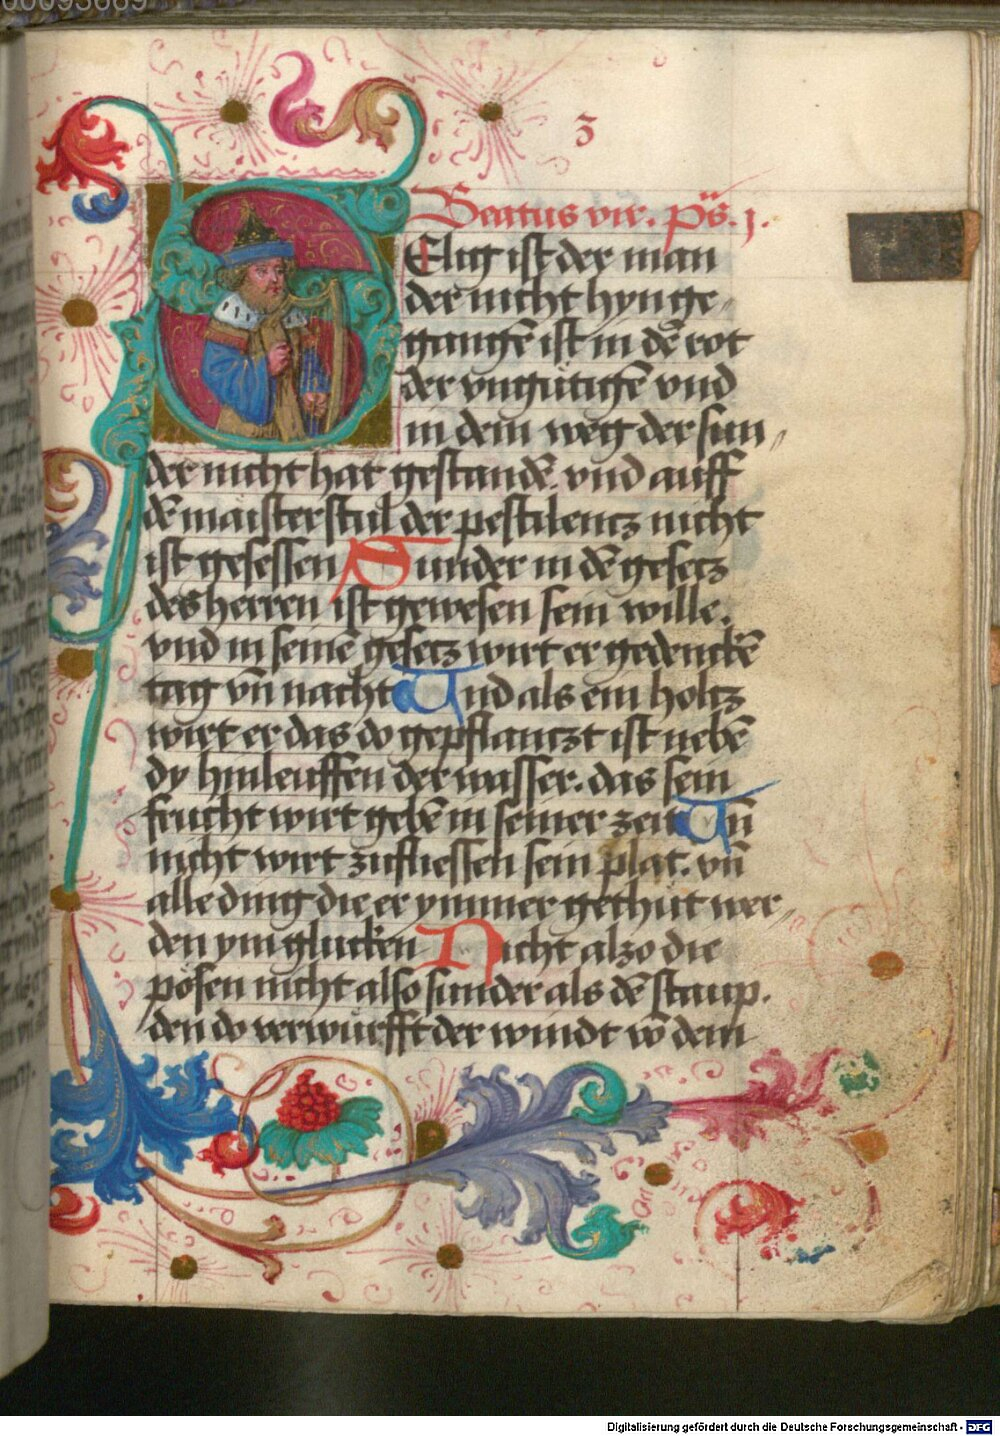 00095669
3
Beatus vir. ps. j.
SElig ist der man
der nicht hyn ge„
gangē ist in dē rot
der vngütigē vnd
in dem weg der sun„
der nicht hat gestandē. vnd auff
dē maisterstul der pestilencz nicht
ist gesessen Sunder in dē gesecz
des herren ist gewesen sein wille.
vnd in seinē gesecz wirt er gedenckē
tag vn̄ nacht Und als ein holtz
wirt er das do gepflanczt ist nebē
dy hinleuffen der wasser. das sein
frucht wirt gebē in seiner zeit Un̄
nicht wirt zufliessen sein plat. vn̄
alle ding die er ymmer gethut wer„
den ym glucken Nicht alzo die
pösen nicht also sunder als dē staup.
den do verwürfft der windt vō dem
Digitalisierung gefördert durch die Deutsche Forschungsgemeinschaft - DFG